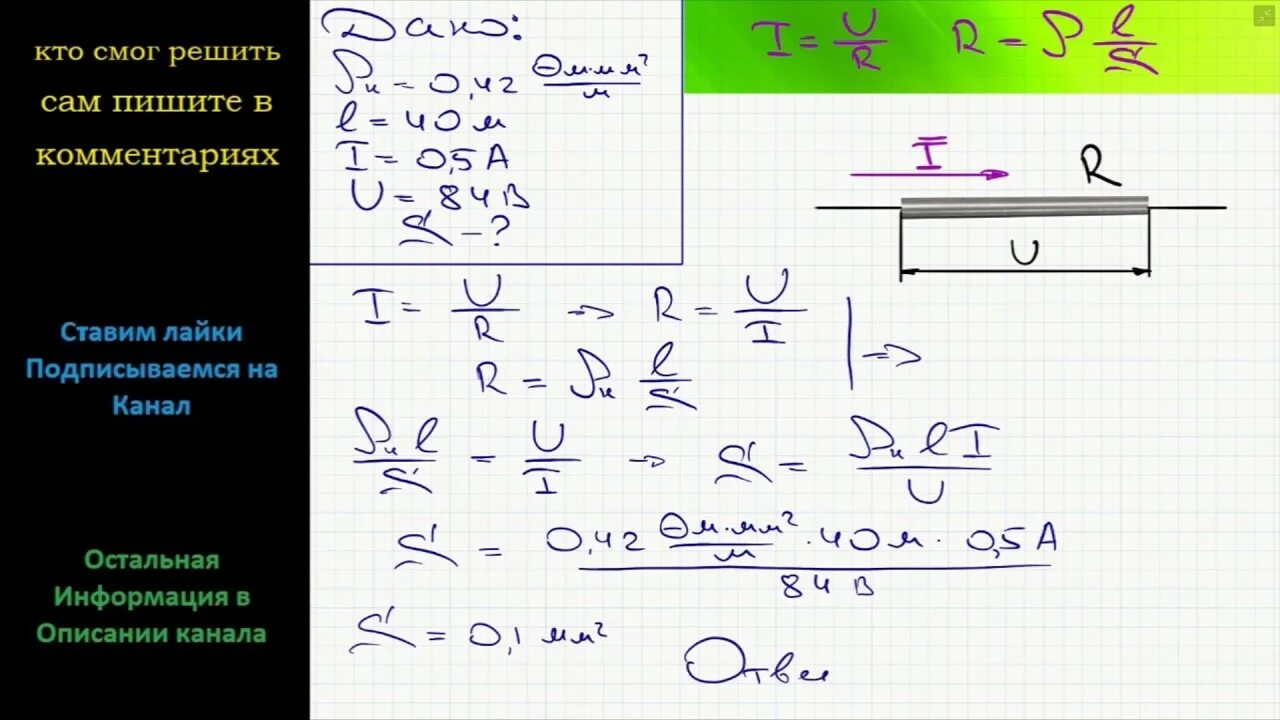 кто смог решить
сам пишите в
комментариях
Ставим лайки
Подписываемся на
Канал
Остальная
Информация в
Описании канала
Дано:
ρн = 0,42 Ом·мм²/м
l = 40 м
I = 0,5 А
U = 84 В
S – ?
I = U/R R = ρ l/S
I
R
U
I = U/R => R = U/I
R = ρн l/S
=>
ρн l/S = U/I → S = ρн l I/U
S = 0,42 Ом·мм²/м · 40 м · 0,5 А / 84 В
S = 0,1 мм²
Отве